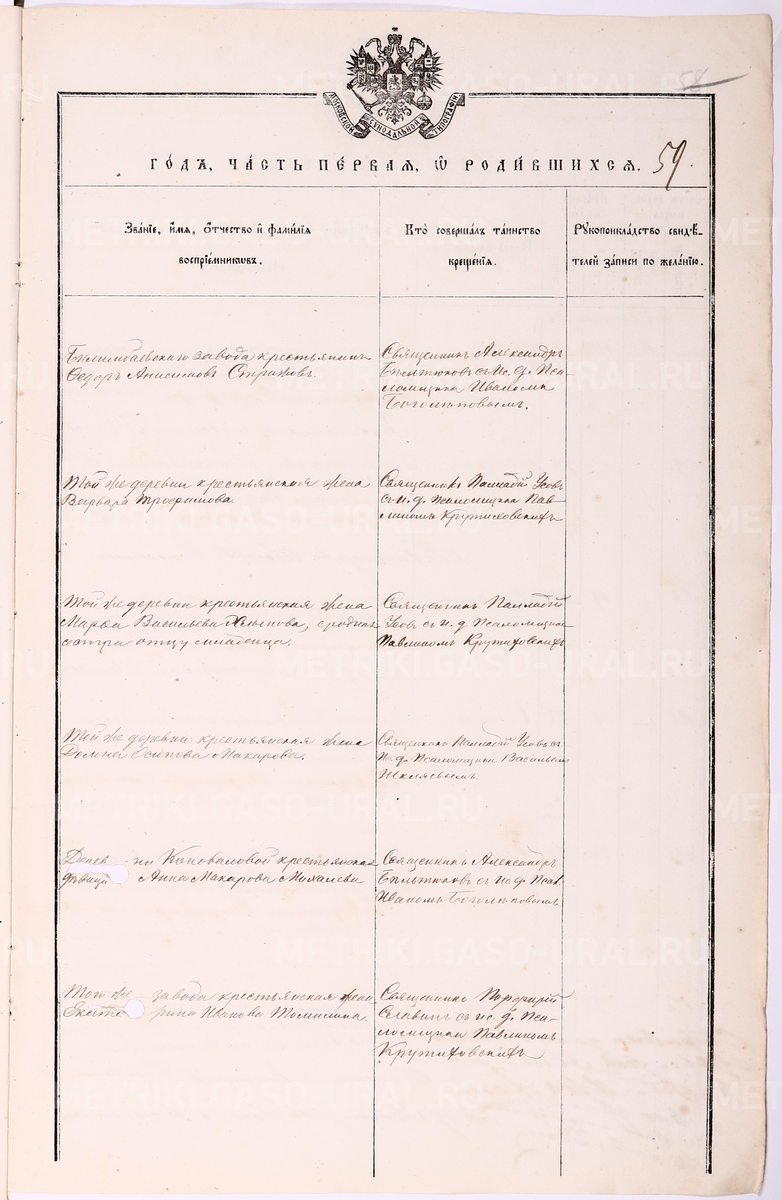 МОСКОВСКОЙ СѴНОДАЛЬНОЙ ТИПОГРАФІИ
58
ГО́ДЪ, ЧА́СТЬ ПЕ́РВАЯ, Ѡ҆ РОДИ́ВШИХСѦ. 59.
Зва́нїе, и҆́мѧ, ѻ҆́тчество и҆ фами́лїѧ
воспрїе́мникѡвъ.
Кто̀ соверша́лъ та́инство
креще́нїѧ.
Рꙋкоприкла́дство свидѣ́-
телей за́писи по жела́нїю.
Билимбаевскаго завода крестьянинъ
Ѳедоръ Анисимовъ Страховъ.
Священникъ Александръ
Бѣльтюковъ съ ис. д. Пса-
ломщика Иваномъ
Боголѣповымъ.
Той же деревни крестьянская жена
Варвара Трофимова.
Священникъ Палладій Усовъ
съ и. д. псаломщика Пав-
линомъ Крутиховскихъ
Той же деревни крестьянская жена
Марѳа Васильева, сродная
сестра отцу младенца.
Священникъ Палладій
Усовъ съ и. д. Псаломщика
Павлиномъ Крутиховскихъ
Той же деревни крестьянская жена
Домна Осипова Макарова.
Священникъ Палладій Усовъ съ
и. д. Псаломщика Васильемъ
Деревни Коноваловой крестьянская
дѣвица Анна Макарова Михалева
Священникъ Александръ
Бѣльтюковъ съ ис. д. Псал.
Иваномъ Боголѣповымъ
Того же завода крестьянская жена
Екатерина Иванова Томилина.
Священникъ Порфирій
Славнинъ съ ис. д. Пса-
ломщика Павлиномъ
Крутиховскихъ
METRIKI.GASO-URAL.RU